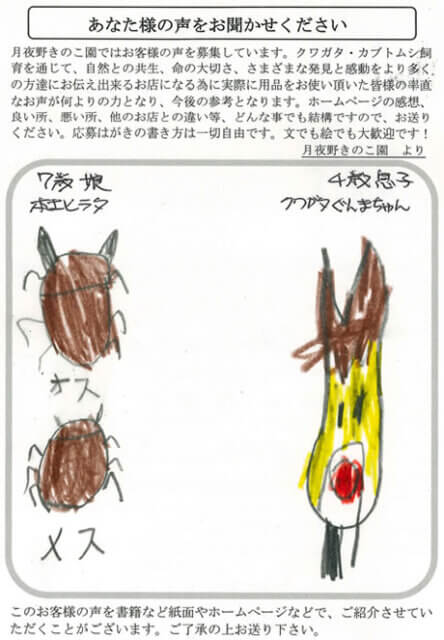 あなた様の声をお聞かせください
月夜野きのこ園ではお客様の声を募集しています。クワガタ・カブトムシ飼
育を通じて、自然との共生、命の大切さ、さまざまな発見と感動をより多く
の方達にお伝え出来るお店になる為に実際に用品をお使い頂いた皆様の率直
なお声が何よりの力となり、今後の参考となります。ホームページの感想、
良い所、悪い所、他のお店との違い等、どんな事でも結構ですので、お送り
ください。応募はがきの書き方は一切自由です。文でも絵でも大歓迎です！
月夜野きのこ園　より
7歳 娘
本土ヒラタ
4歳 息子
クワガタぐんまちゃん
オス
メス
このお客様の声を書籍など紙面やホームページなどで、ご紹介させてい
ただくことがございます。ご了承の上お送り下さい。